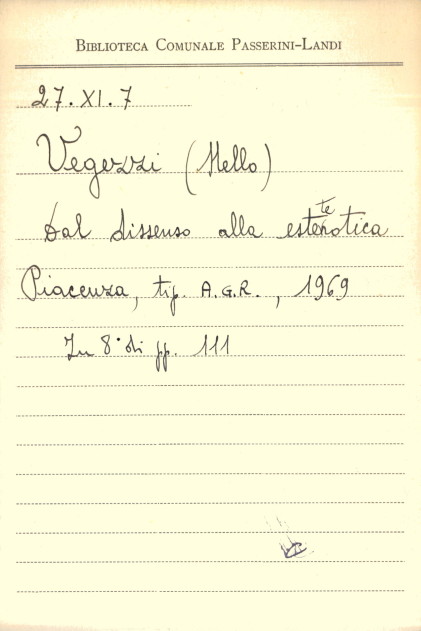 BIBLIOTECA COMUNALE PASSERINI-LANDI
27. XI. 7
Vegezzi (Nello)
Dal dissenso alla estetenotica
Piacenza, tip. A.G.R., 1969
In 8° di pp. 111